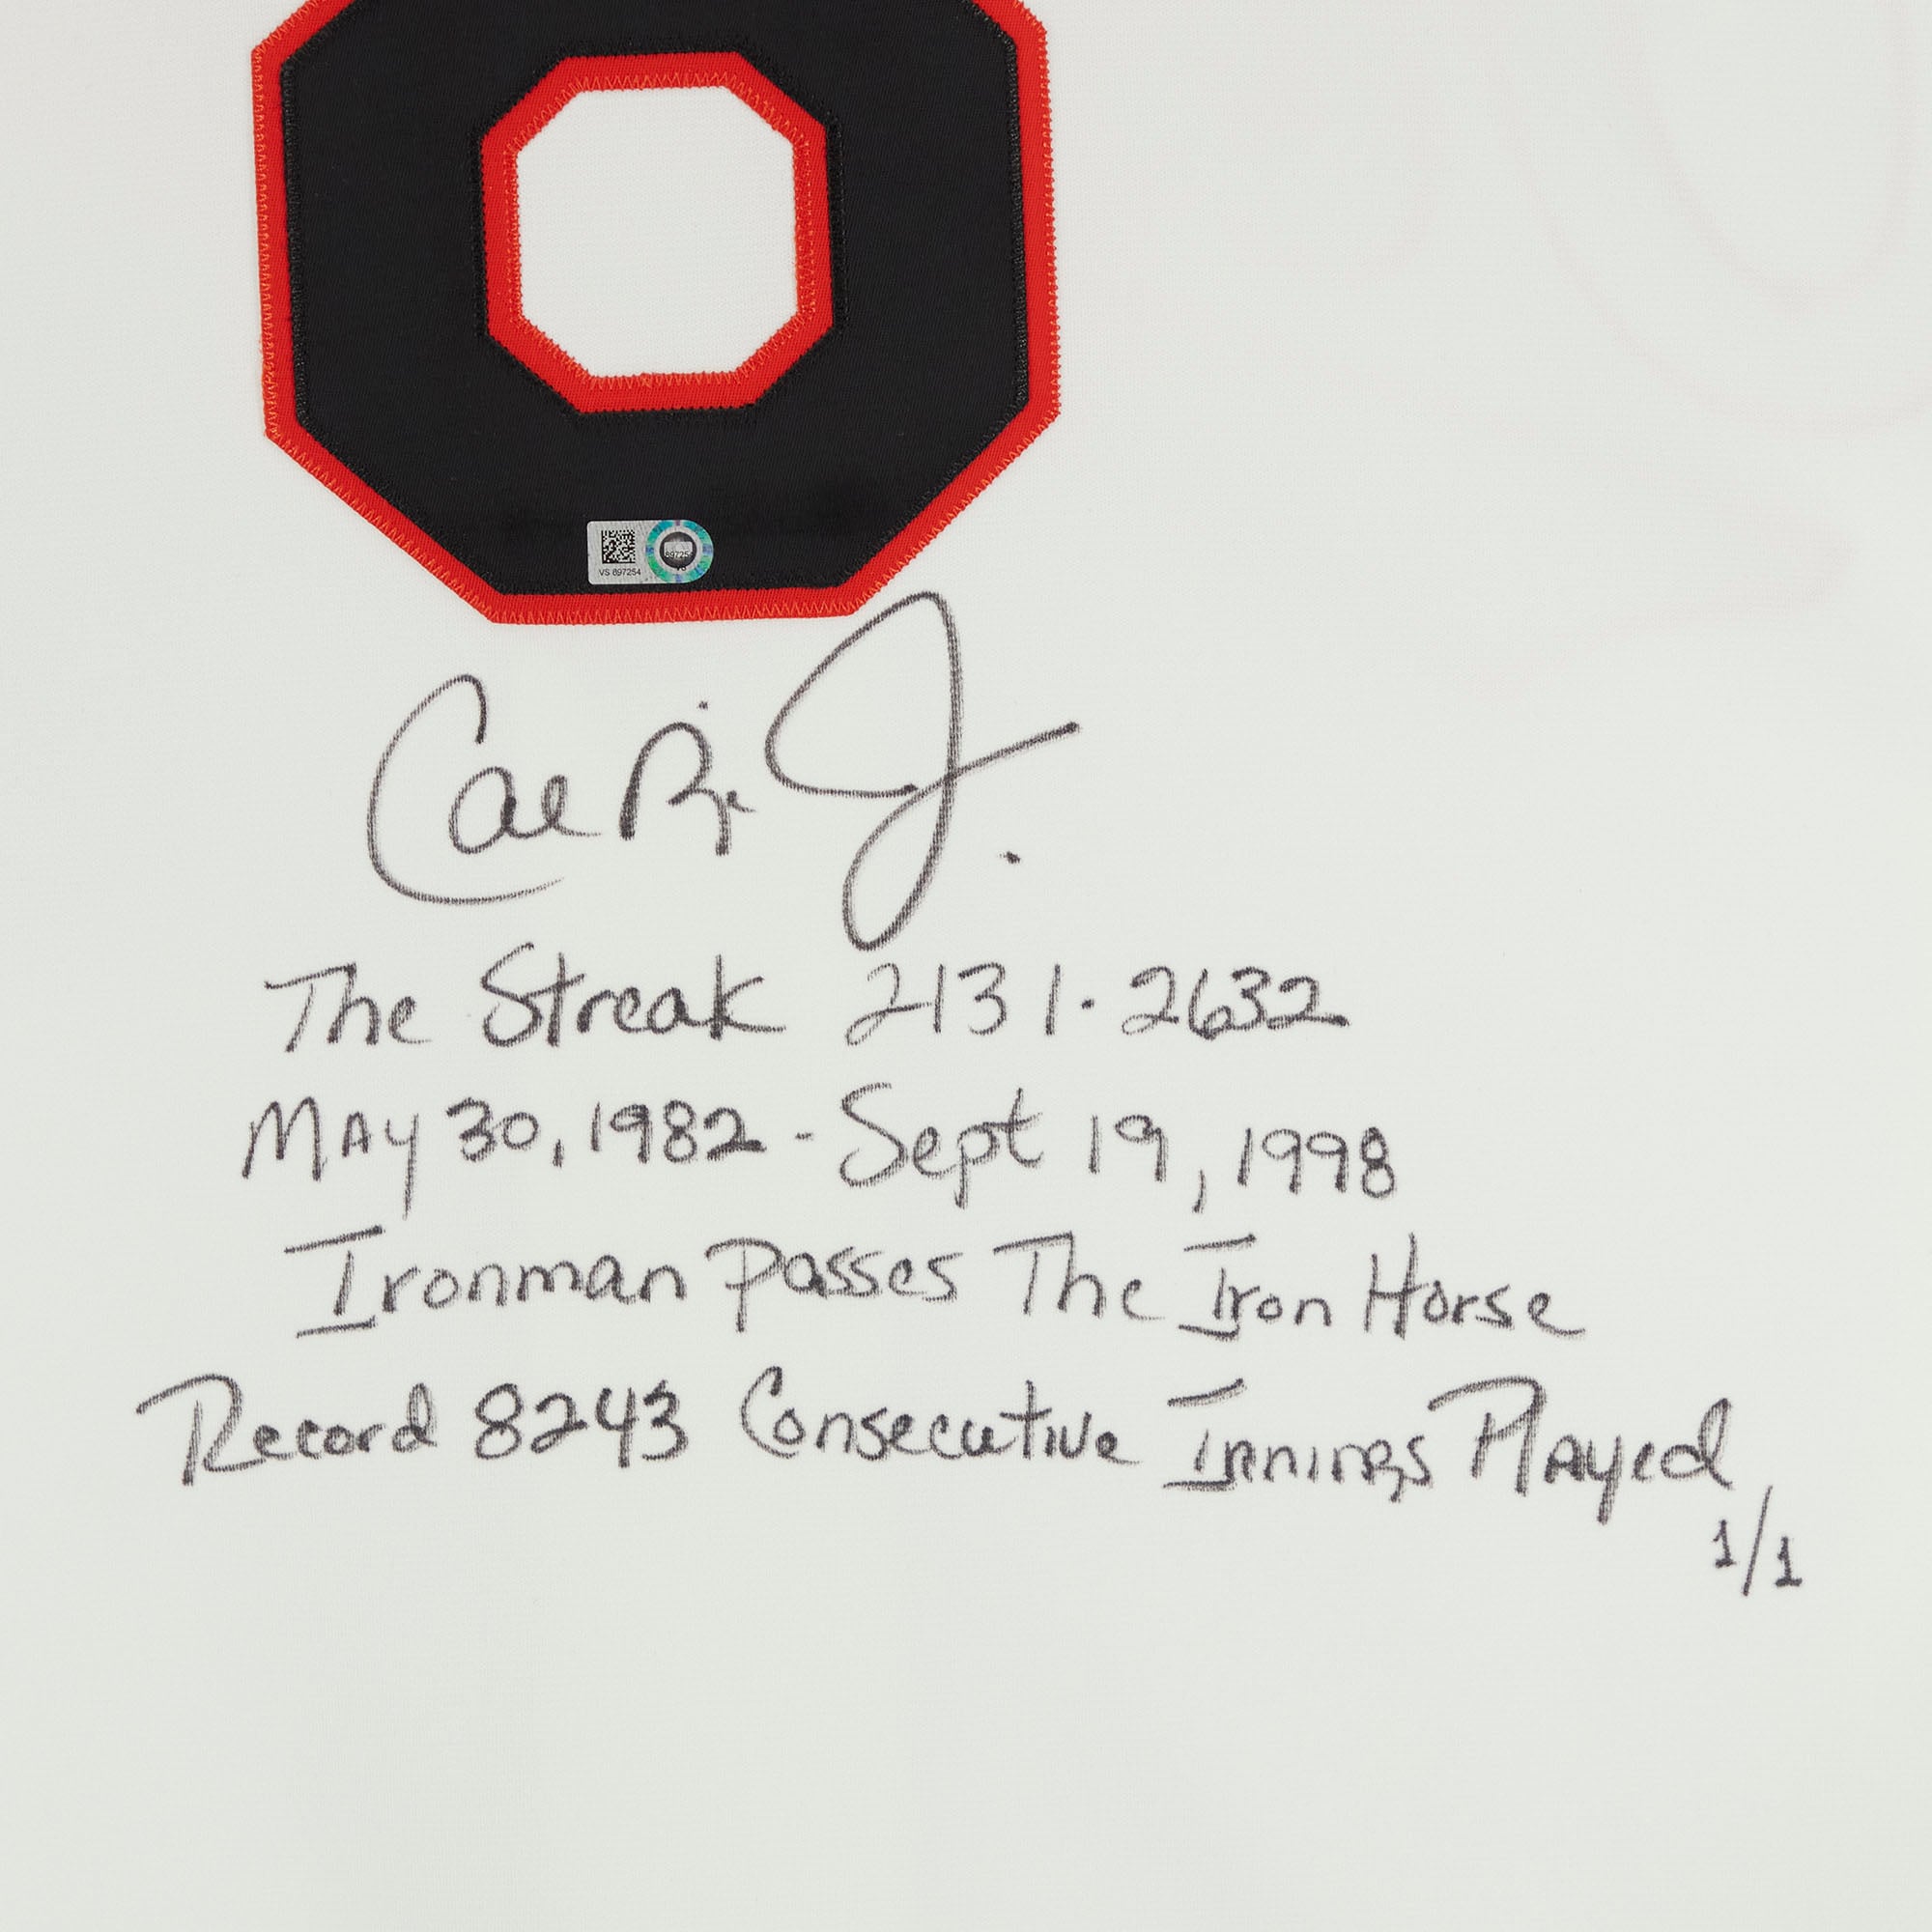 8
VS 897254
Cal Rip Jr.
The Streak 2131 · 2632
May 30, 1982 - Sept 19, 1998
Ironman Passes The Iron Horse
Record 8243 Consecutive Innings Played
1/1